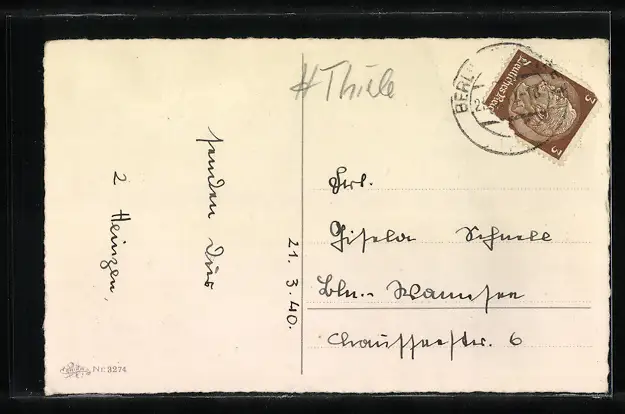 # Thiele
BERL
Deutsches Reich
3
3
senden Dir
2 Heinzen,
21. 3. 40.
Frl.
Gisela Schnell
Bln.- Wannsee
Chausseestr. 6
Nr. 3274